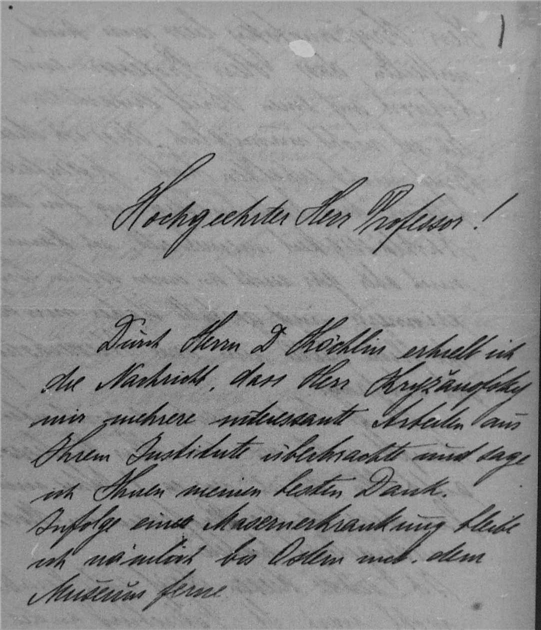 Hochgeehrter Herr Professor!
Durch Herrn D Köchlin erhielt ich
die Nachricht, dass Herr Kryžanofsky
mir mehrere interessante Arbeiten aus
Ihrem Institute überbrachte und sage
ich Ihnen meinen besten Dank.
Infolge einer Masernerkrankung bleibe
ich nämlich bis Ostern dem
Museum ferne